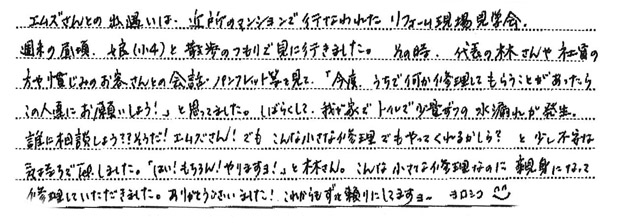 エムズさんとの出逢いは、近所のマンションで行なわれた リフォーム現場見学会。
週末の昼頃、娘(小4)と散歩のつもりで見に行きました。 その時、代表の林さんや社員の
方や慣じみのお客さんとの会話、パンフレット等を見て、「今度、うちで何か修理してもらうことがあったら
この人達にお願いしよう!」と思ってました。しばらくして、我が家でトイレで少量ずつの水漏れが発生。
誰に相談しよう??そうだ!エムズさん!でも こんな小さな修理でもやってくれるかしら? と少し不安な
気持ちでTELしました。「はい!もちろん!やりますョ!」と林さん。こんな小さな修理なのに 親身になって
修理していただきました。ありがとうございました!これからもずっと頼りにしてますョ〜 ヨロシク